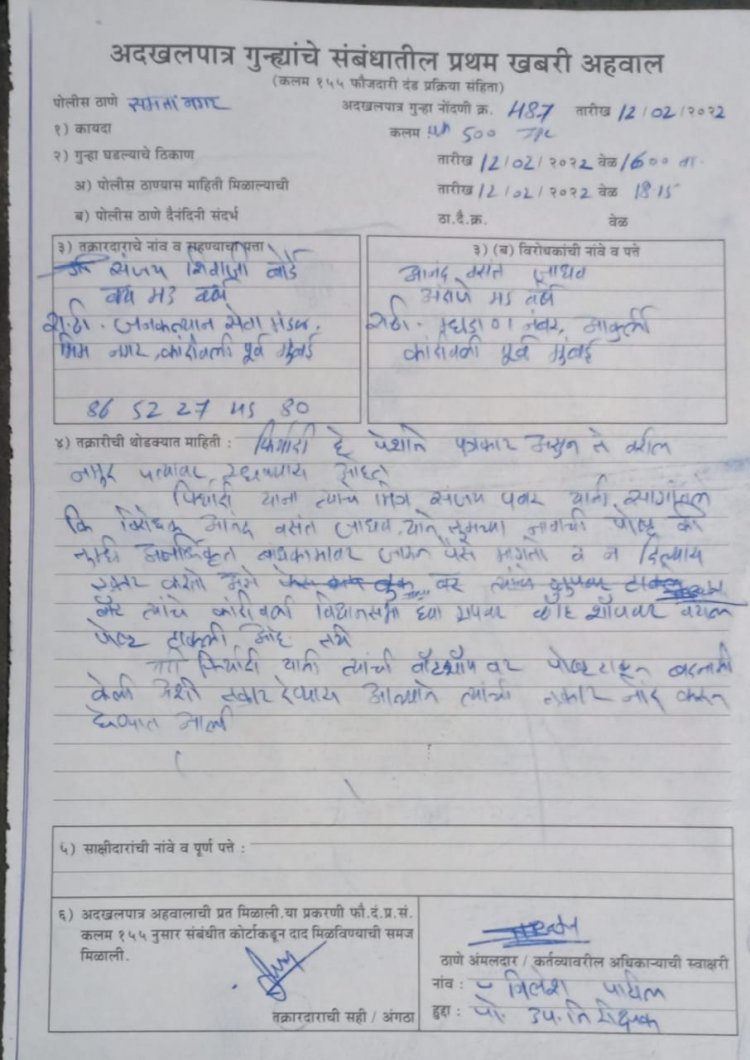 अदखलपात्र गुन्ह्यांचे संबंधातील प्रथम खबरी अहवाल
(कलम १५५ फौजदारी दंड प्रक्रिया संहिता)
पोलीस ठाणे समता नगर अदखलपात्र गुन्हा नोंदणी क्र. 487 तारीख 12/02/२०२२
१) कायदा कलम 500
२) गुन्हा घडल्याचे ठिकाण तारीख 12/02/२०२२ वेळ 1600
अ) पोलीस ठाण्यास माहिती मिळाल्याची तारीख 12/02/२०२२ वेळ 18.15
ब) पोलीस ठाणे दैनंदिनी संदर्भ ठा.दै.क्र. वेळ
३) तक्रारदाराचे नांव व राहण्याचा पत्ता
संजय शिवाजी बोर्डे
वय 45 वर्षे
रा.ठी. जनकल्यान सेवा मंडळ.
भिम नगर, कांदीवली पूर्व मुंबई
86 52 27 45 80
३) (ब) विरोधकांची नांवे व पत्ते
आनंद वसंत जाधव
अंदाजे 45 वर्षे
रा.ठी. म्हाडा 01 नंबर, आकुर्ली
कांदीवली पूर्व मुंबई
४) तक्रारीची थोडक्यात माहिती : फिर्यादी हे पेशाने पत्रकार असुन ते वरील
नमुद पत्यावर राहण्यास आहेत
फिर्यादी यांना त्यांचे मित्र संजय पवार यांनी सांगीतले
कि विरोधक आनंद वसंत जाधव, याने तुमच्या नावाची पोस्ट की
तुम्ही अनधिकृत बांधकामावर जाऊन पैसे मागतो व न दिल्यास
त्यांचे कांदीवली विधानसभा वरील
पोस्ट टाकली आहे तरी
तरी फिर्यादी यांनी त्यांची वॉटसॅप वर पोस्ट टाकुन बदनामी
केली अशी तक्रार देण्यास आल्याने त्यांची तक्रार नोंद करुन
घेण्यात आली
५) साक्षीदारांची नांवे व पूर्ण पत्ते :
६) अदखलपात्र अहवालाची प्रत मिळाली.या प्रकरणी फौ.दं.प्र.सं.
कलम १५५ नुसार संबंधीत कोर्टाकडून दाद मिळविण्याची समज
मिळाली.
तक्रारदाराची सही / अंगठा
ठाणे अंमलदार / कर्तव्यावरील अधिकाऱ्याची स्वाक्षरी
नांव : निलेश पाटील
हुद्दा : पो. उप. निरीक्षक